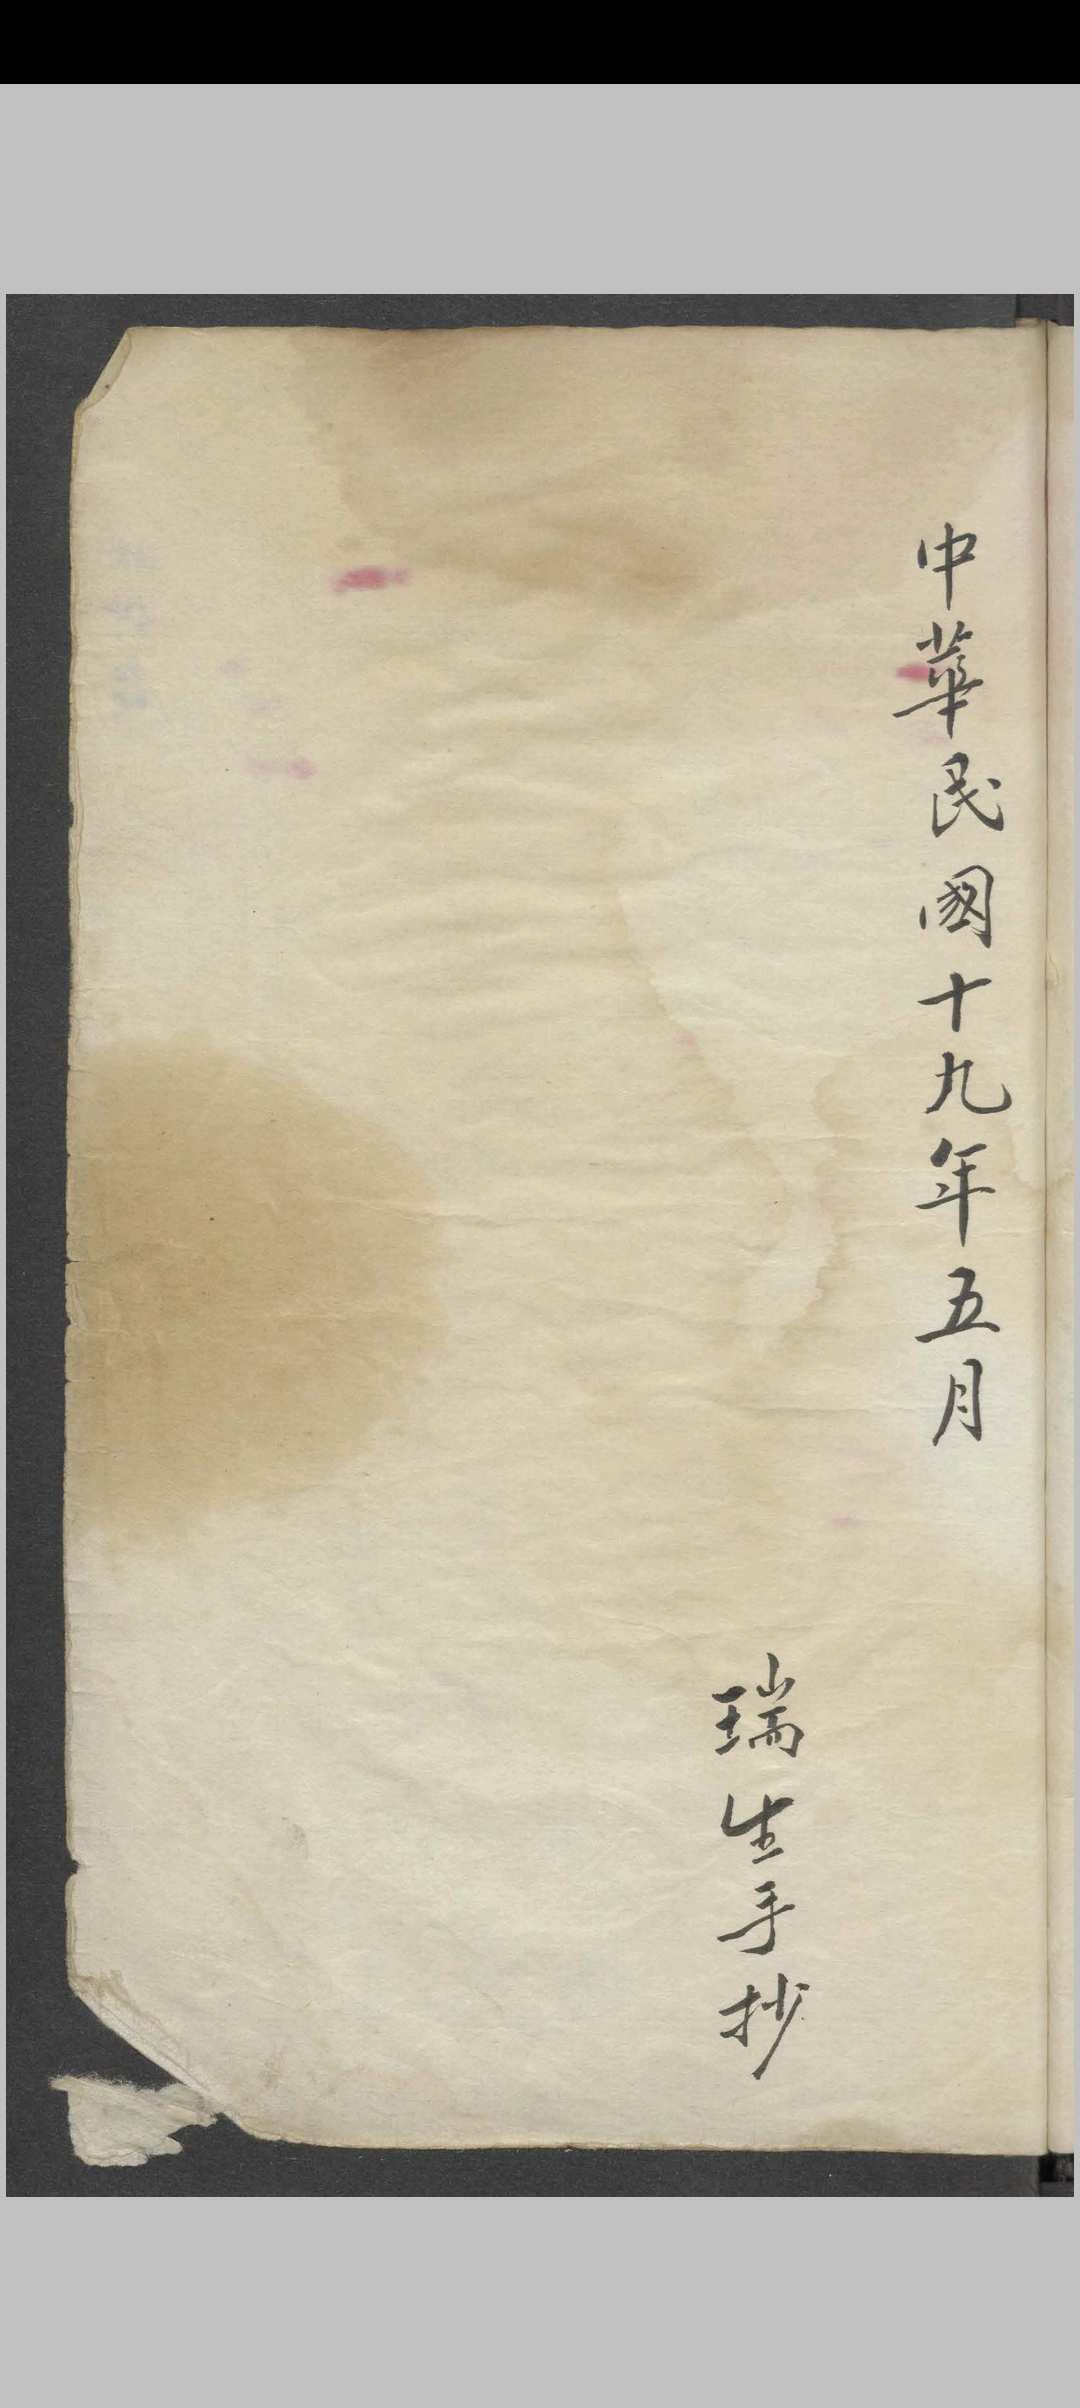 中華民國十九年五月
瑞生手抄